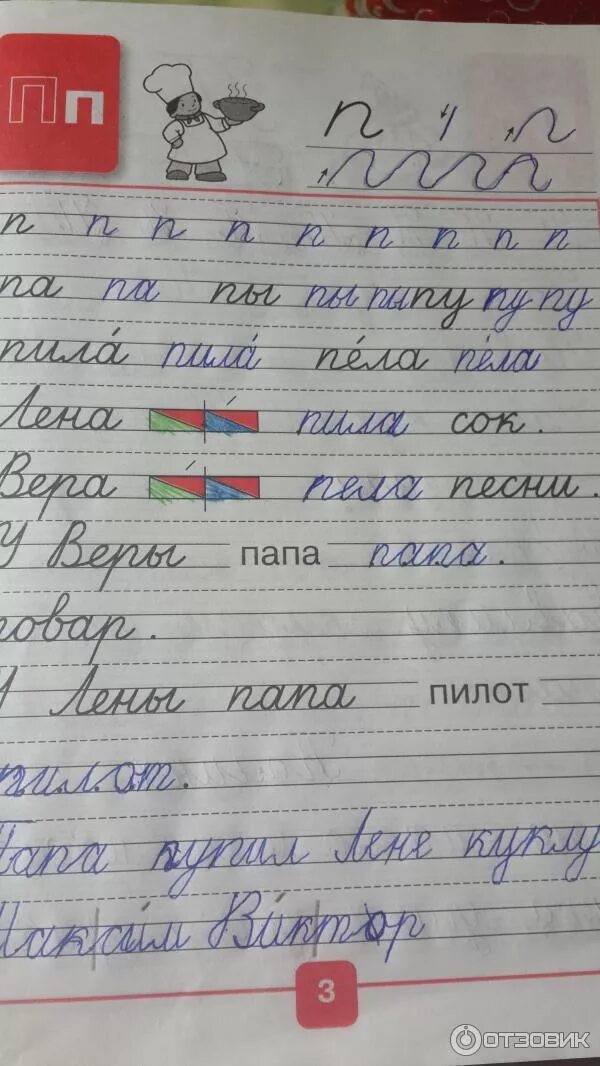 Пп п
п п п п п п п п п
па па пы пы пы пу пу пу
пила́ пила́ пе́ла пе́ла
Лена пила сок.
Вера пела песни.
У Веры папа папа.
повар.
У Лены папа пилот
пилот.
Папа купил Лене куклу
Максим Ви́ктор
3
ОТЗОВИК